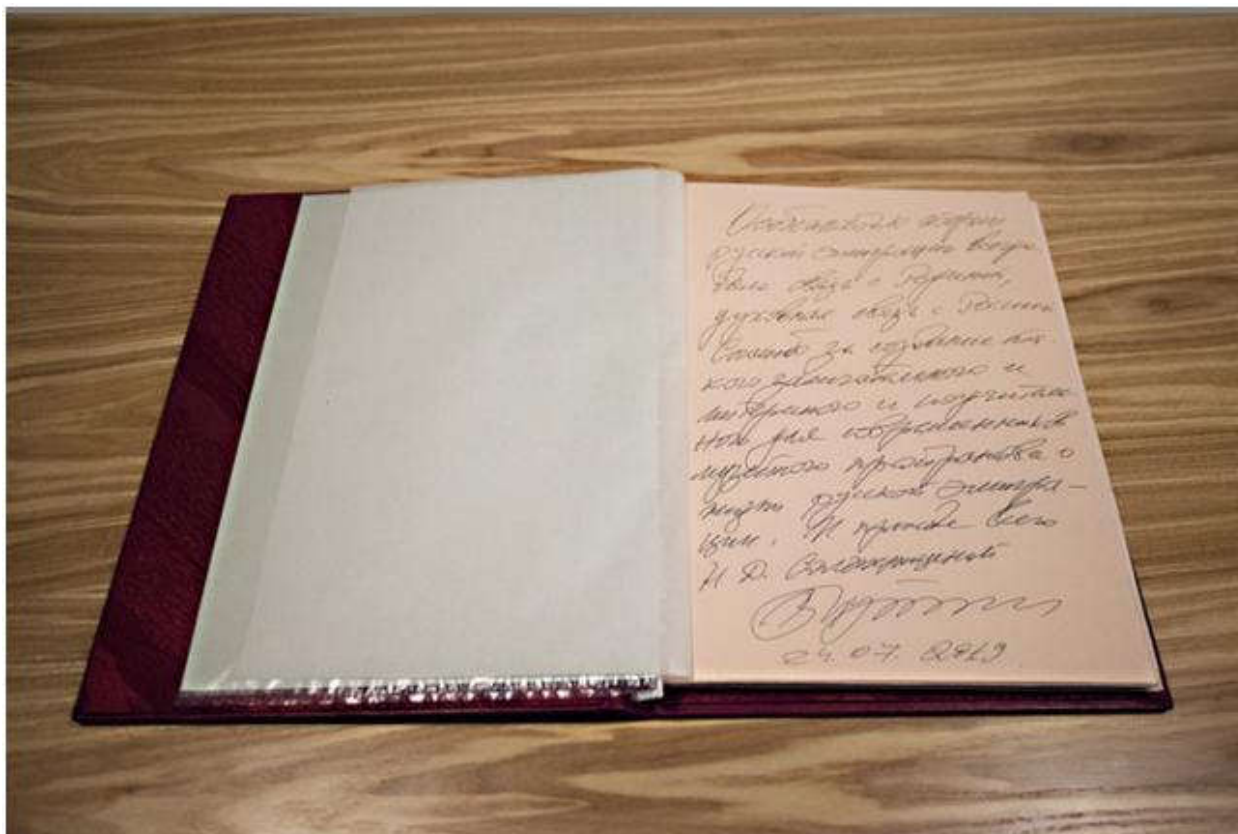 Особенностью
русской эмиграции всегда
была связь с Родиной,
духовная связь с Россией
Спасибо за создание та
кого замечательного и
интересного и поучитель
ного для современников
музейного пространства о
жизни русской эмигра-
ции. И прежде всего
Н Д. Солженицыной
В Путин
24. 07. 2019